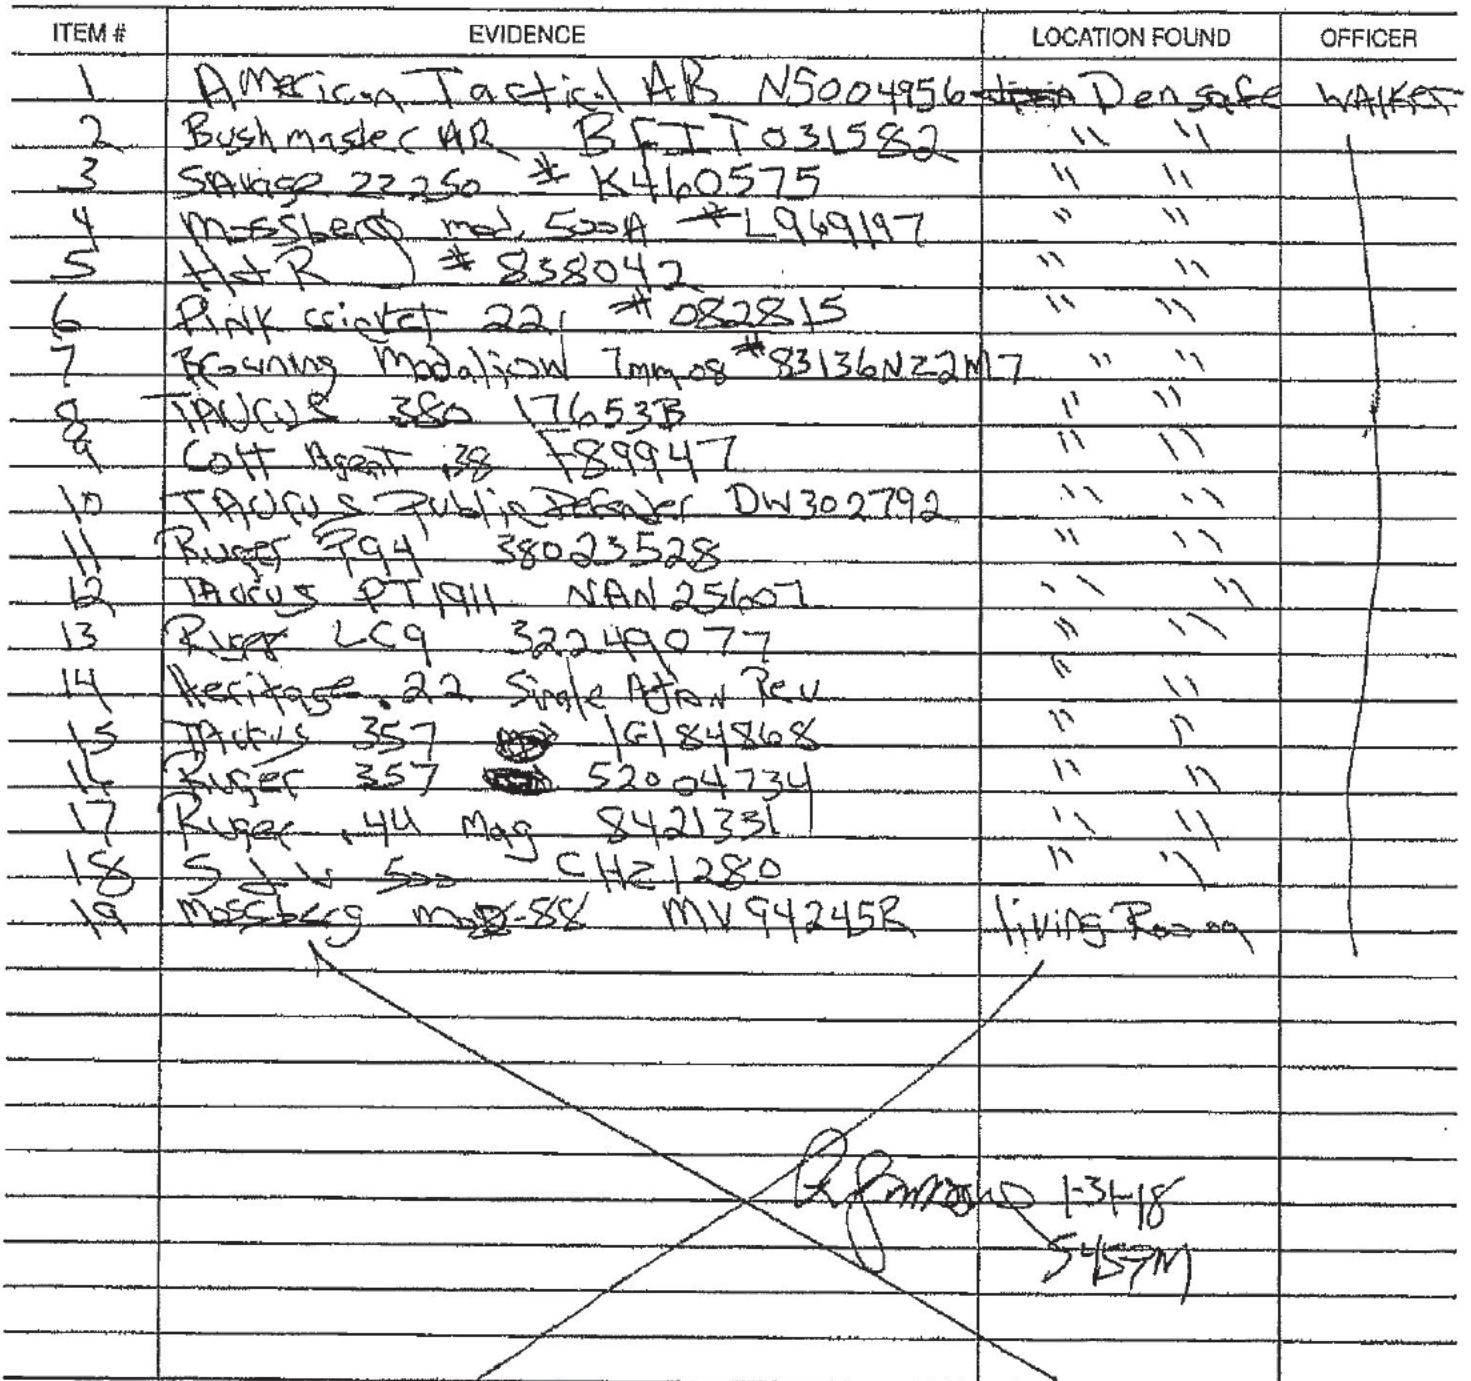 ITEM # EVIDENCE LOCATION FOUND OFFICER
1 American Tactical AR NS004956 Den safe WALKER
2 Bushmaster AR BFIT031582 " "
3 SAvage 22250 # K460575 " "
4 Mossberg mod. 500A # L969197 " "
5 H&R # 838042 " "
6 Pink cricket 22 # 082815 " "
7 Browning Medalion 7mm08 # 83136NZ2M7 " "
8 TAURUS 380 17653B " "
9 Colt Agent .38 F89947 " "
10 TAURUS Public Defender DW302792 " "
11 Ruger P94 38023528 " "
12 TAurus PT1911 NAN25607 " "
13 Ruger LC9 32249077 " "
14 Heritage .22 Single Action Rev " "
15 TAurus 357 IG184868 " "
16 Ruger 357 52004734 " "
17 Ruger .44 Mag 8421331 " "
18 S&W 500 CHZ1280 " "
19 Mossberg mod-88 MV94245R living Room
1-31-18